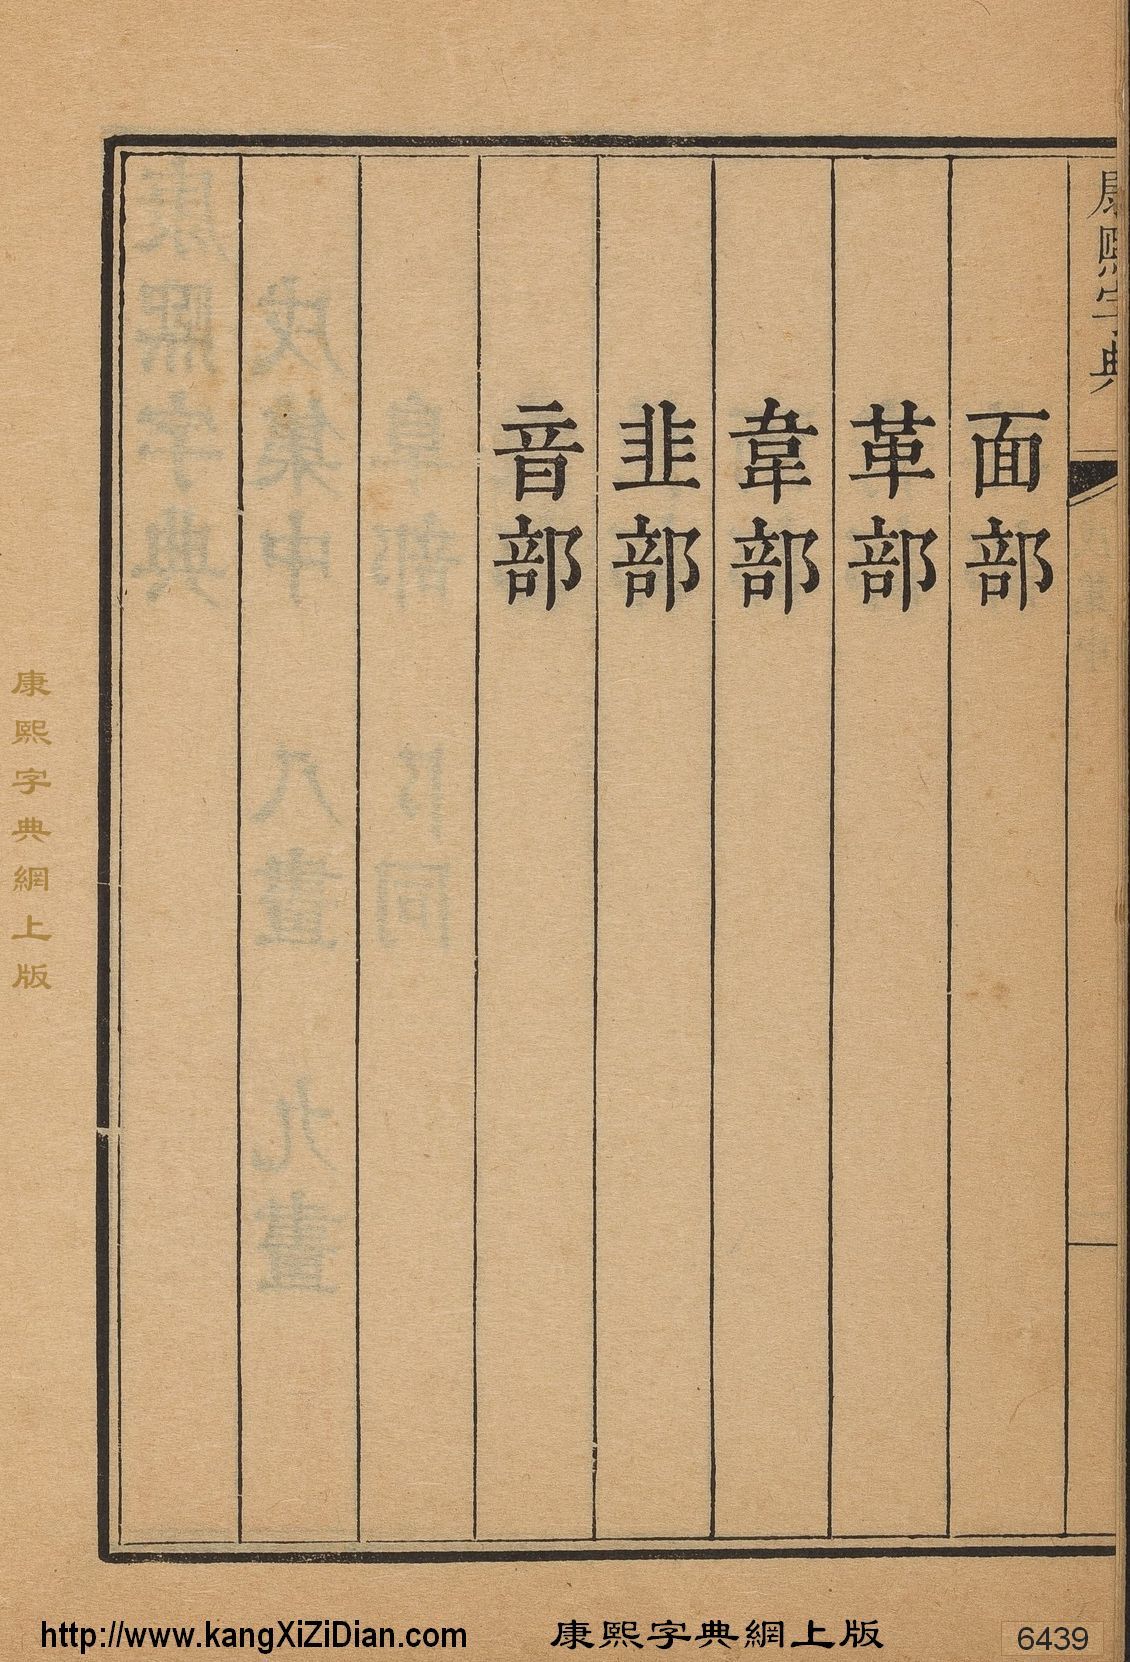 康熙字典
面部
革部
韋部
韭部
音部
康熙字典網上版
http://www.kangXiZiDian.com
康熙字典網上版
6439